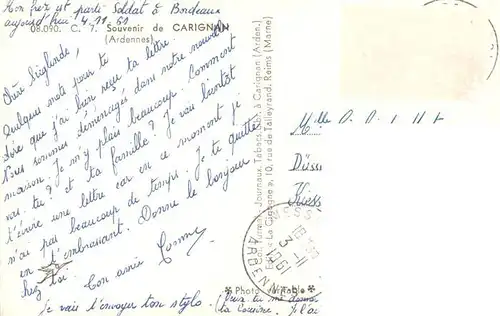 Mon frère est parti Soldat à Bordeaux
aujourd'hui 4.11.61
08.090. C. 7. Souvenir de CARIGNAN
(Ardennes)
Chère Sieglinde,
Quelques mots pour te
dire que j'ai bien reçu ta lettre.
Nous sommes déménagés dans notre nouvelle
maison. Je m'y plais beaucoup. Comment
vas-tu? et ta famille? Je vais bientôt
t'écrire une lettre car en ce moment je
n'ai pas beaucoup de temps. Je te quitte
en t'embrassant. Donne le bonjour
chez toi.
Ton amie
Je vais t'envoyer ton stylo.
la
Journaux, Tabacs, à Carignan (Arden.)
La Cigogne, 10, rue de Talleyrand, Reims (Marne)
Mlle
Düss
★ Photo véritable ★
3
-11
1961
ARDENNES